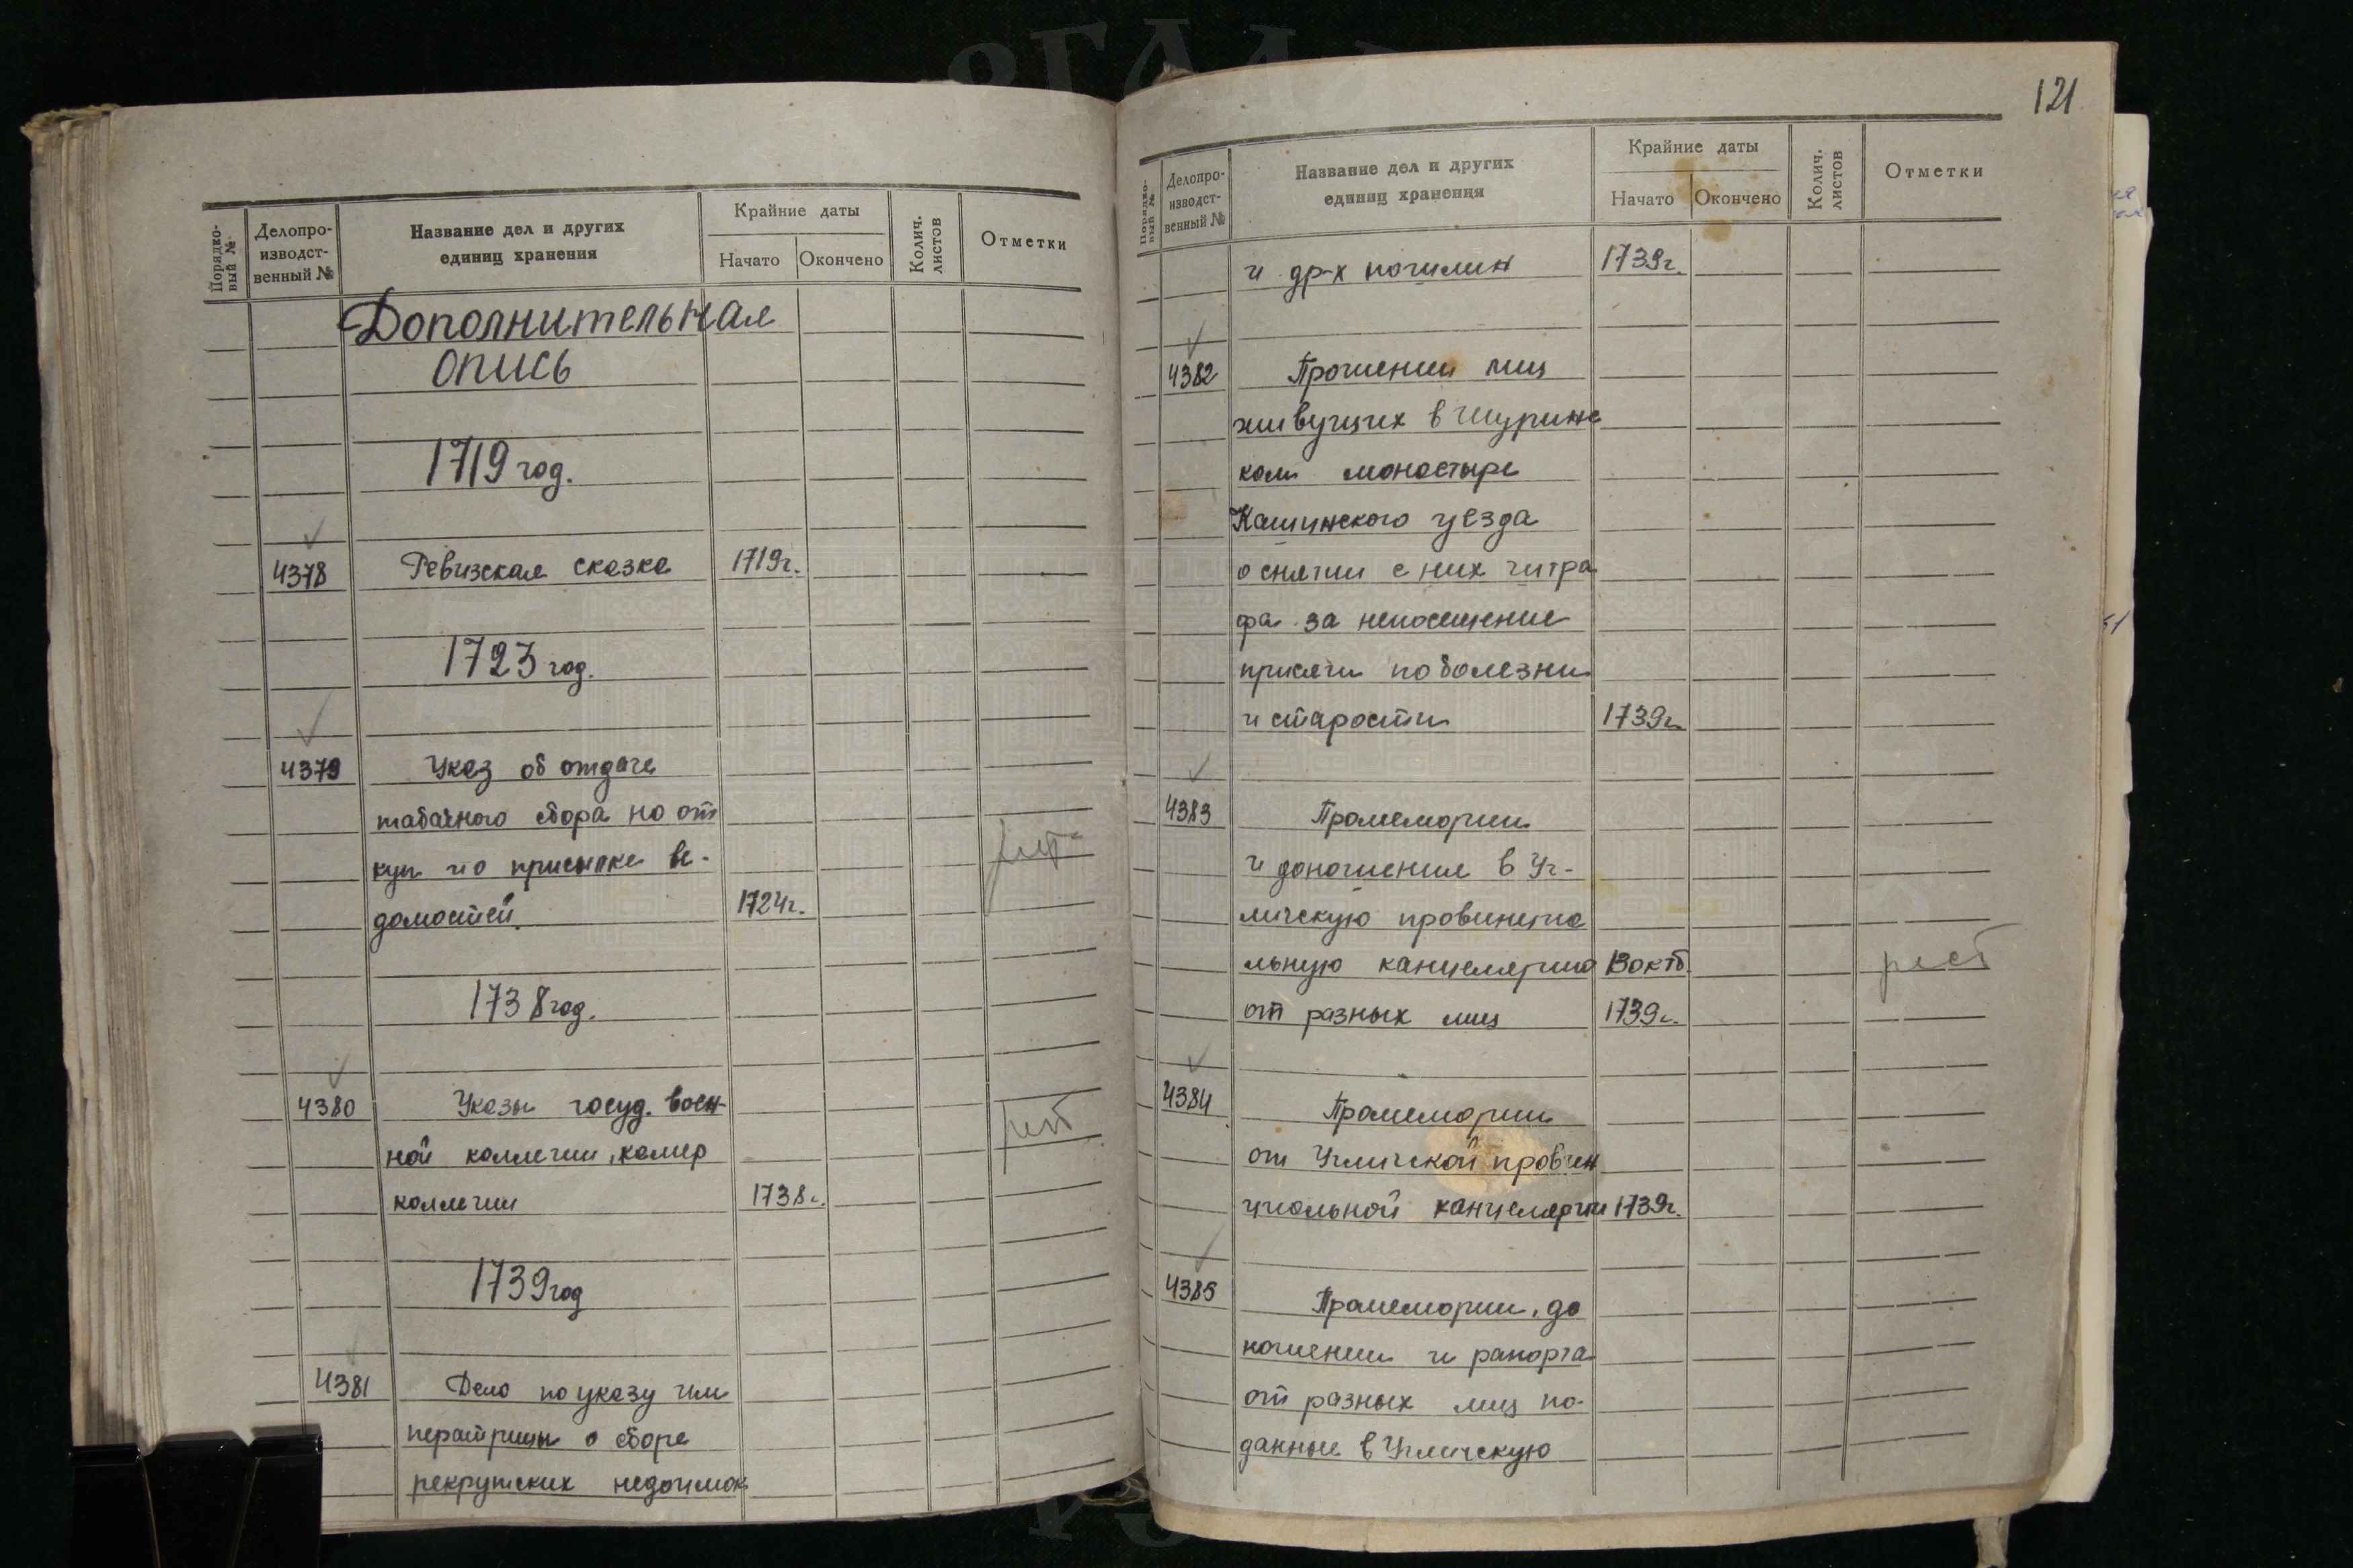 Порядко-
вый №
Делопро-
изводст-
венный №
Название дел и других
единиц хранения
Крайние даты
Начато
Окончено
Колич.
листов
Отметки
Дополнительная
опись
1719 год.
4378 Ревизская сказка 1719г.
1723 год.
4379 Указ об отдаче
табачного сбора на от
куп и о присылке ве-
домостей. 1724г.
1738 год.
4380 Указы госуд. воен
ной коллегии, камер
рест
коллегии 1738г.
1739 год
4381 Дело по указу им
ператрицы о сборе
рекрутских недоимок
121
Порядко-
вый №
Делопро-
изводст-
венный №
Название дел и других
единиц хранения
Крайние даты
Начато
Окончено
Колич.
листов
Отметки
и др-х пошлин 1739г.
4382 Прошении лиц
живущих в Шуринс
ком монастыре
Кашинского уезда
о снятии с них штра
фа за непосещение
присяги по болезни
и старости 1739г.
4383 Промемории
и доношения в Уг-
личскую провинциа
льную канцелярию 13 октб. рест
от разных лиц 1739г.
4384 Промемории
от Угличской провин
циальной канцелярии 1739г.
4385 Промемории, до
ношении и рапорта
от разных лиц по-
данные в Угличскую